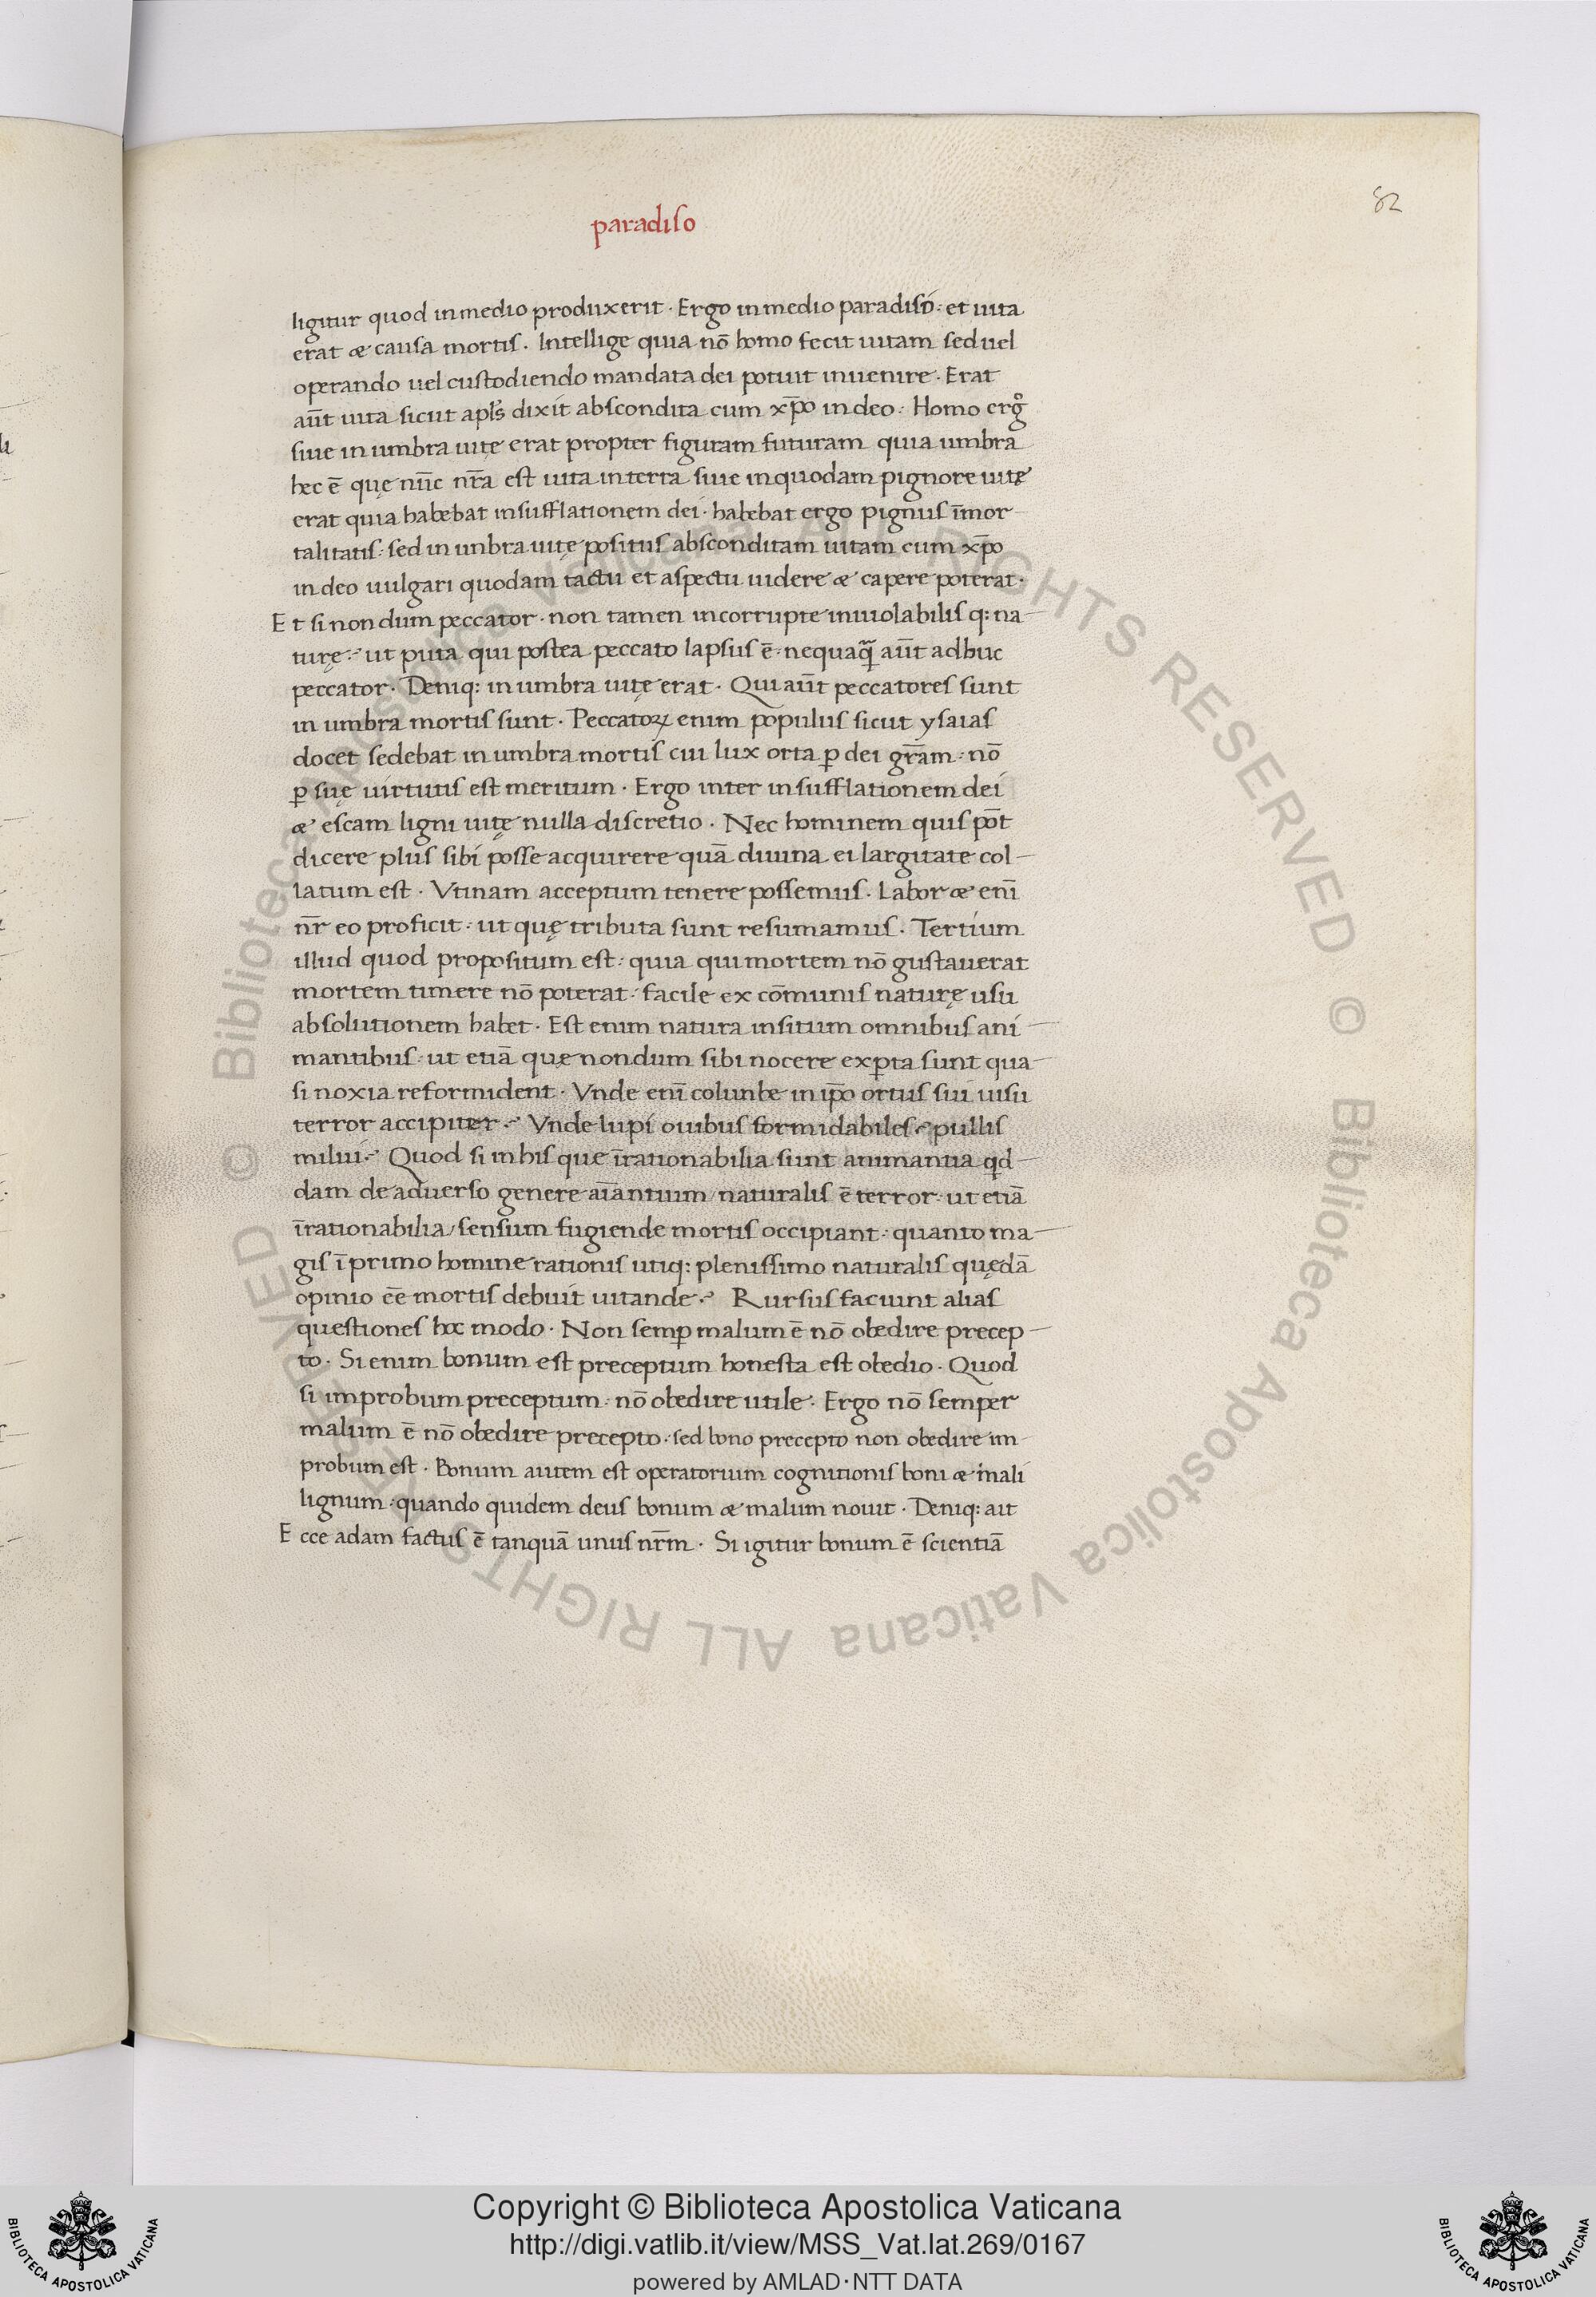 82
paradiso
ligitur quod in medio produxerit · Ergo in medio paradisi : et uita
erat & causa mortis . Intellige quia nō homo fecit uitam sed uel
operando uel custodiendo mandata dei potuit inuenire · Erat
aūt uita sicut apl's dixit abscondita cum xp̄o in deo : Homo ergͦ
siue in umbra uitę erat propter figuram futuram quia umbra
hec ē quę nūc nr̄a est uita in terra siue in quodam pignore uitę
erat quia habebat insufflationem dei · habebat ergo pignus īmor
talitatis : sed in unbra uitę positus absconditam uitam cum xp̄o
in deo uulgari quodam tactu et aspectu uidere & capere poterat ·
Et si nondum peccator · non tamen incorrupte inuiolabilis q: na-
turę : ut puta qui postea peccato lapsus ē · nequaꝗ̄ aūt adhuc
peccator · Deniq: in umbra uitę erat · Qui aūt peccatores sunt
in umbra mortis sunt · Peccatoꝝ enim populus sicut ysaias
docet sedebat in umbra mortis cui lux orta ꝑ dei gr̄am : nō
ꝑ suę uirtutis est meritum · Ergo inter insufflationem dei
& escam ligni uitę nulla discretio · Nec hominem quis pōt
dicere plus sibi posse acquirere quā diuina ei largitate col-
latum est · Vtinam acceptum tenere possemus . Labor & enī
nr̄ eo proficit : ut quę tributa sunt resumamus . Tertium
illud quod propositum est : quia qui mortem nō gustauerat
mortem timere nō poterat : facile ex cōmunis naturę usu
absolutionem habet · Est enim natura insitum omnibus ani-
mantibus : ut etiā quę nondum sibi nocere exꝑta sunt qua-
si noxia reformident · Vnde enī colunbe in ip̄o ortus sui uisu
terror accipiter . Vnde lupi ouibus formidabiles . pullis
milui . Quod si in his que īrationabilia sunt animantia qd-
dam de aduerso genere aīantium / naturalis ē terror : ut etiā
īrationabilia / sensum fugiende mortis occipiant : quanto ma-
gis ī primo homine rationis utiq: plenissimo naturalis quędā
opinio eē mortis debuit uitande . Rursus faciunt alias
questiones hoc modo · Non semꝑ malum ē nō obedire precep-
to · Si enim bonum est preceptum honesta est obedio · Quod
si improbum preceptum : nō obedire utile · Ergo nō semper
malum ē nō obedire precepto : sed bono precepto non obedire im-
probum est · Bonum autem est operatorium cognitionis boni & mali
lignum : quando quidem deus bonum & malum nouit · Deniq: ait
Ecce adam factus ē tanquā unus nr̄m · Si igitur bonum ē scientiā
© Biblioteca Apostolica Vaticana ALL RIGHTS RESERVED © Biblioteca Apostolica Vaticana ALL RIGHTS RESERVED
Copyright © Biblioteca Apostolica Vaticana
http://digi.vatlib.it/view/MSS_Vat.lat.269/0167
powered by AMLAD·NTT DATA
BIBLIOTECA APOSTOLICA VATICANA
BIBLIOTECA APOSTOLICA VATICANA